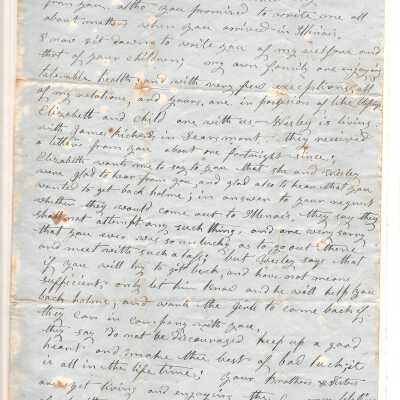 from you, altho you promised to write me all
about matters when you arrived in Illinois,
I now sit down to write you of my welfare and
that of your children; my own family are enjoying
tolerable health, and with very few exceptions, all
of my relations, and yours, are in possession of like
Elizabeth and Child are with us — Wesley is living
with James Richards in Dearmont — they received
a letter from you about one fortnight since;
Elizabeth wants me to say to you that she and Wesley
were glad to hear from you, and glad also to hear that you
wanted to get back holme; in answer to your request
whether they would come out to Illinois they say they
shall not attempt any such thing, and are very sorry
that you ever was so unlucky as to go out there
and meet with such a loss; but Wesley says that
if you will try to get back, and have not means
sufficient, only let him know and he will help you
back holme, and wants the Girls to come back if
they can in company with you,
they say do not be discouraged keep up a good
heart, and make the best of bad luck; it
is all in this life time; your Brothers & Sisters
are yet living and enjoying